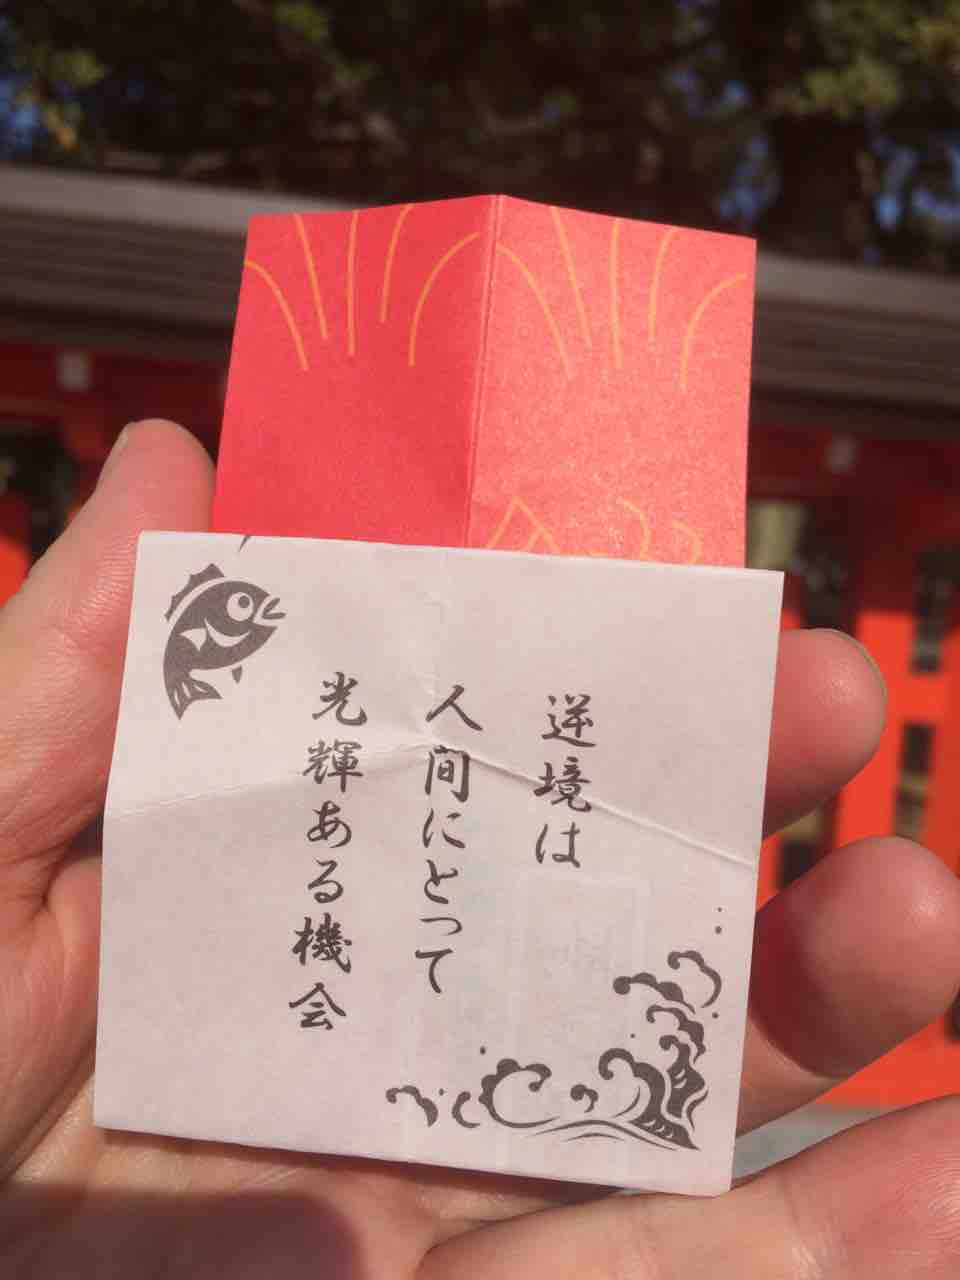 逆境は
人間にとって
光輝ある機会